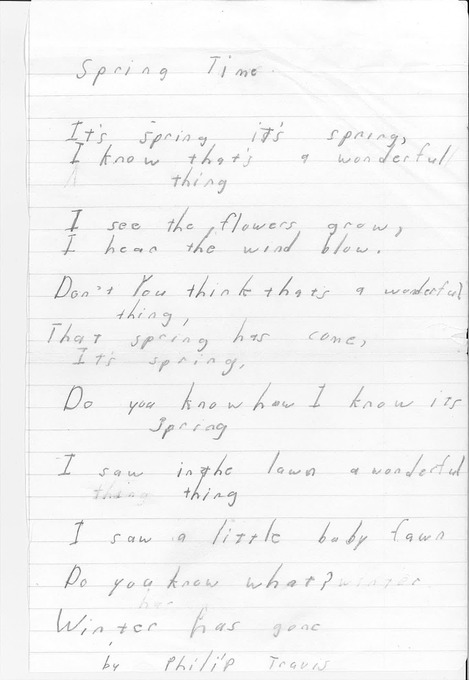 Spring Time
It's spring it's spring,
I know that's a wonderful
thing
I see the flowers grow,
I hear the wind blow.
Don't You think that's a wonderful
thing,
That spring has come,
It's spring,
Do you know how I know its
Spring
I saw in the lawn a wonderful
thing thing
I saw a little baby fawn
Do you know what? winter
has
Winter has gone
by Philip Travis